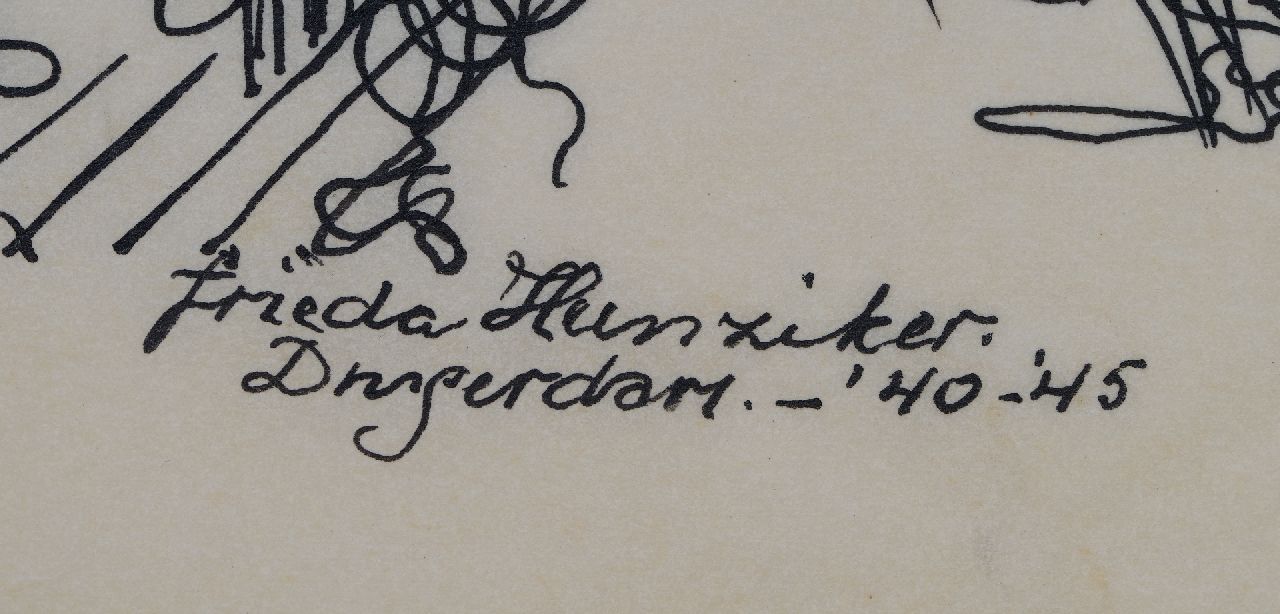 Frieda Hunziker.
Durgerdam. - '40-'45